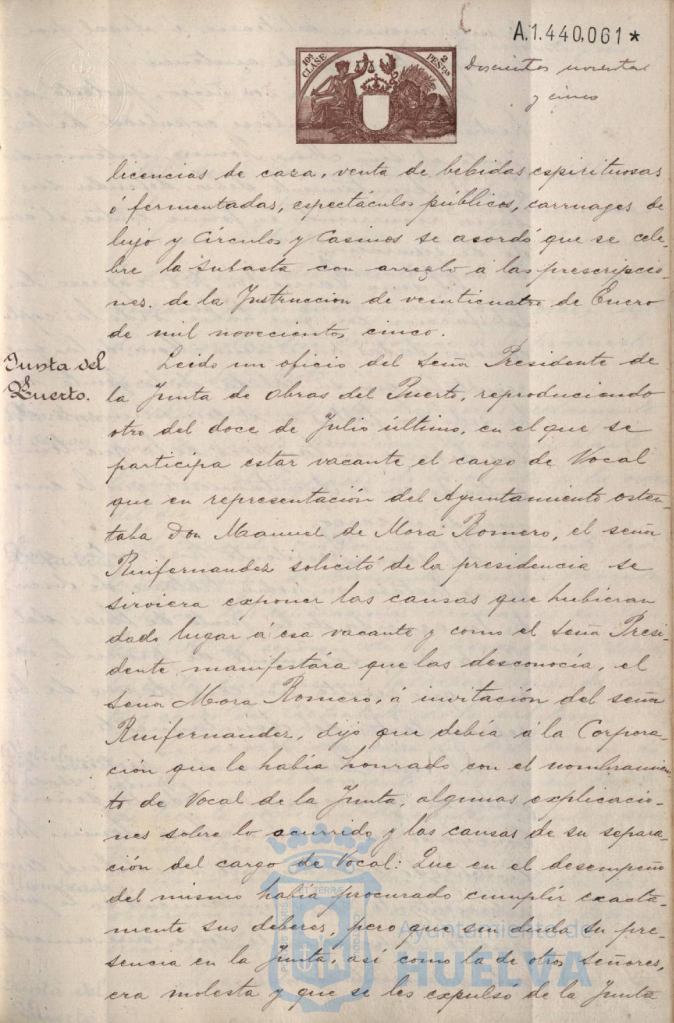 A.1.440,061*
10ª CLASE
2 PESETAS
Doscientos noventa
y cinco
licencias de caza, venta de bebidas espirituosas
ó fermentadas, espectáculos públicos, carruages de
lujo y Círculos y Casinos se acordó que se cele-
bre la subasta con arreglo á las prescripcio-
nes. de la Instruccion de veinticuatro de Enero
de mil novecientos cinco.
Junta del
Puerto.
Leido un oficio del Señor Presidente de
la Junta de Obras del Puerto, reproduciendo
otro del doce de Julio último, en el que se
participa estar vacante el cargo de Vocal
que en representación del Ayuntamiento osten-
taba Don Manuel de Mora Romero, el señor
Ruifernandez solicitó de la presidencia se
sirviera exponer las causas que hubieran
dado lugar á esa vacante y como el Señor Presi-
dente manifestára que las desconocía, el
Señor Mora Romero, á invitación del señor
Ruifernandez, dijo que debía á la Corpora-
ción que le había honrado con el nombramien-
to de Vocal de la Junta, algunas explicacio-
nes sobre lo ocurrido y las causas de su separa-
ción del cargo de Vocal: Que en el desempeño
del mismo había procurado cumplir exacta-
mente sus deberes, pero que sin duda su pre-
sencia en la Junta, así como la de otros Señores,
era molesta y que se les expulsó de la Junta
Ayuntamiento de
HUELVA